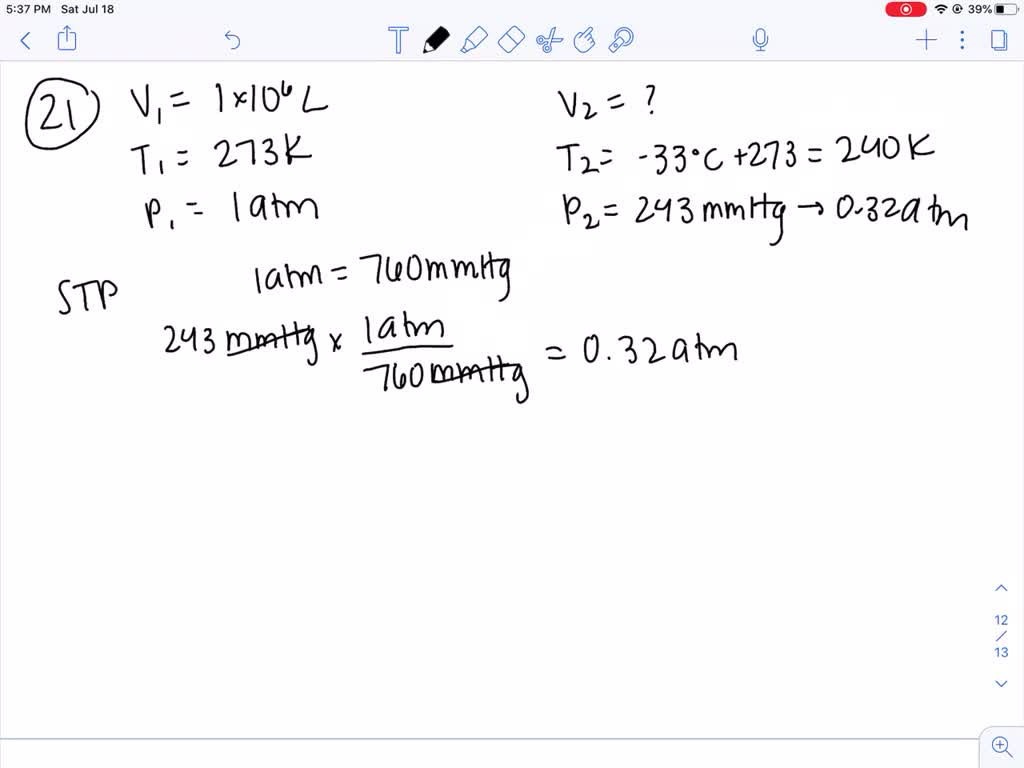 5:37 PM Sat Jul 18
39%
T
21
V₁ = 1×10⁶ L
T₁ = 273K
P₁ = 1atm
V₂ = ?
T₂ = -33°C +273 = 240K
P₂ = 243 mmHg → 0.32atm
STP
1atm = 760mmHg
243 mmHg x 1atm / 760 mmHg = 0.32atm
12
/
13